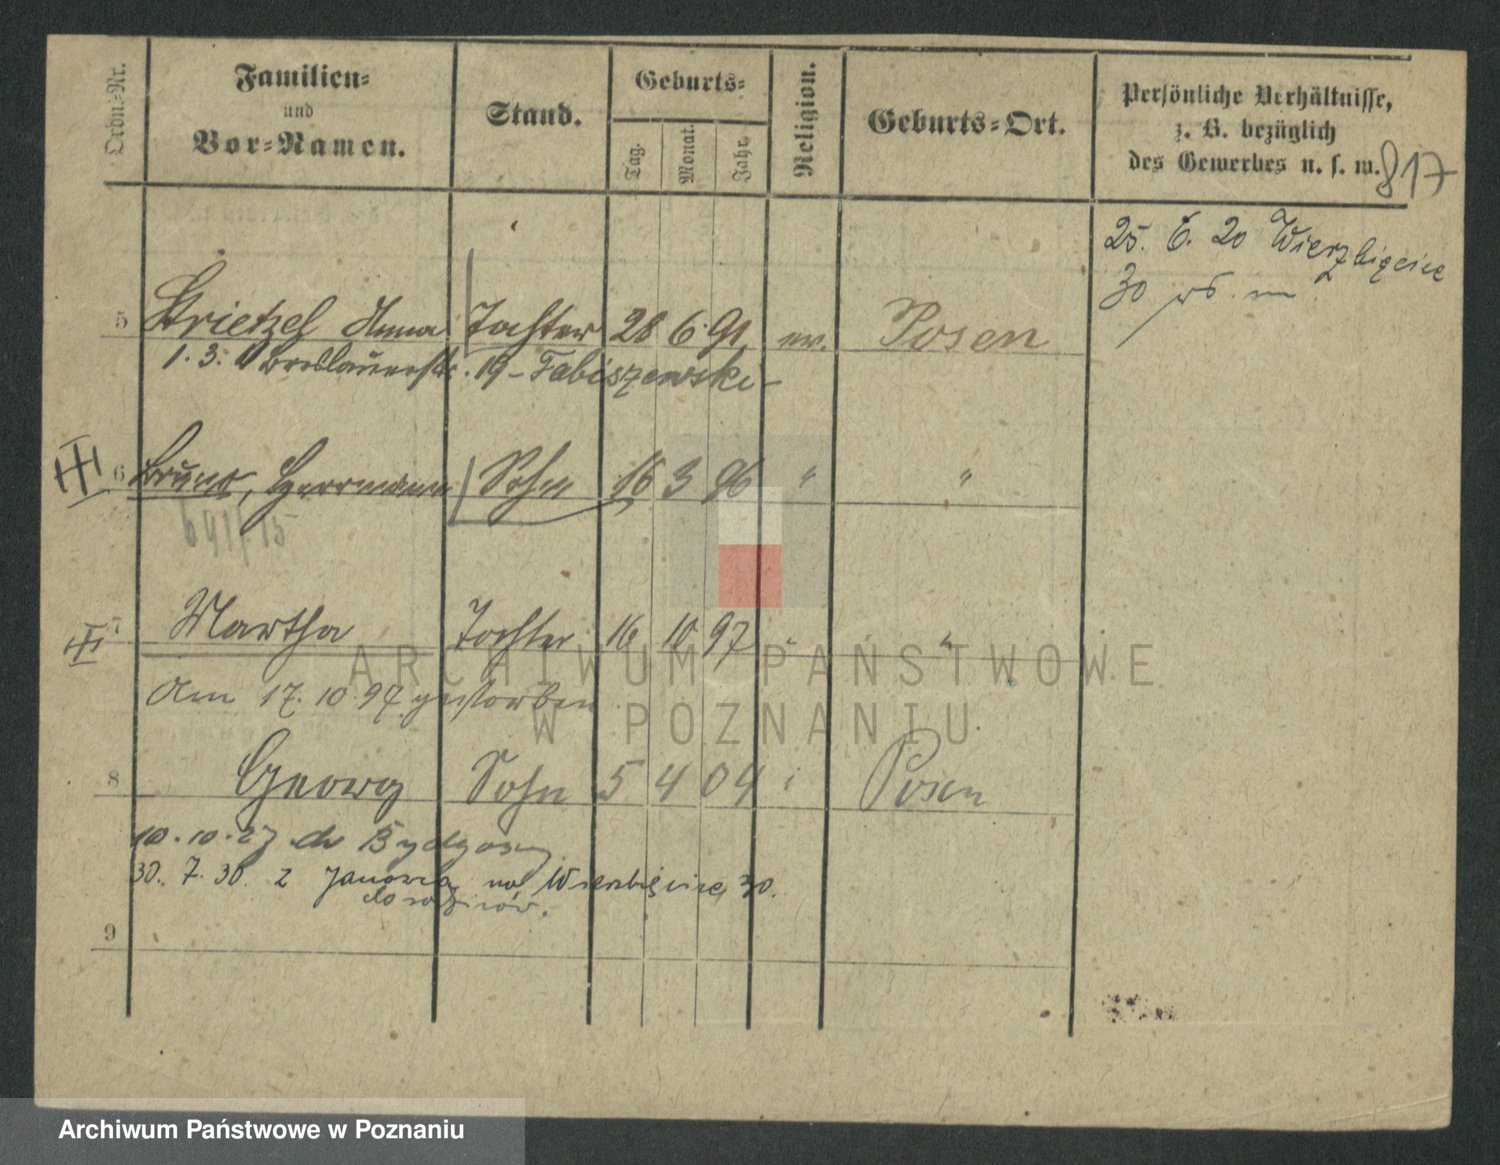 Ordn.-Nr.
Familien-
und
Vor-Namen.
Stand.
Geburts-
Tag.
Monat.
Jahr.
Religion.
Geburts-Ort.
Persönliche Verhältnisse,
z. B. bezüglich
des Gewerbes u. s. w.
817
25. 6. 20 Wierzbięcice
30
5 Strietzel Anna Tochter 28 6 91 ev. Posen
1. 3. 11 Breslauerstr. 19 - Fabiszewski -
6 Bruno, Herrmann Sohn 16 3 96 " "
641/15
7 Martha Tochter 16 10 97 " "
Am 17. 10. 97 gestorben
8 Georg Sohn 5 4 04 Posen
10. 10. 27 do Bydgoszcz
30. 7. 30. z Janowca na Wierzbięcice 30.
do rodziców.
9
ARCHIWUM PAŃSTWOWE
W POZNANIU
Archiwum Państwowe w Poznaniu